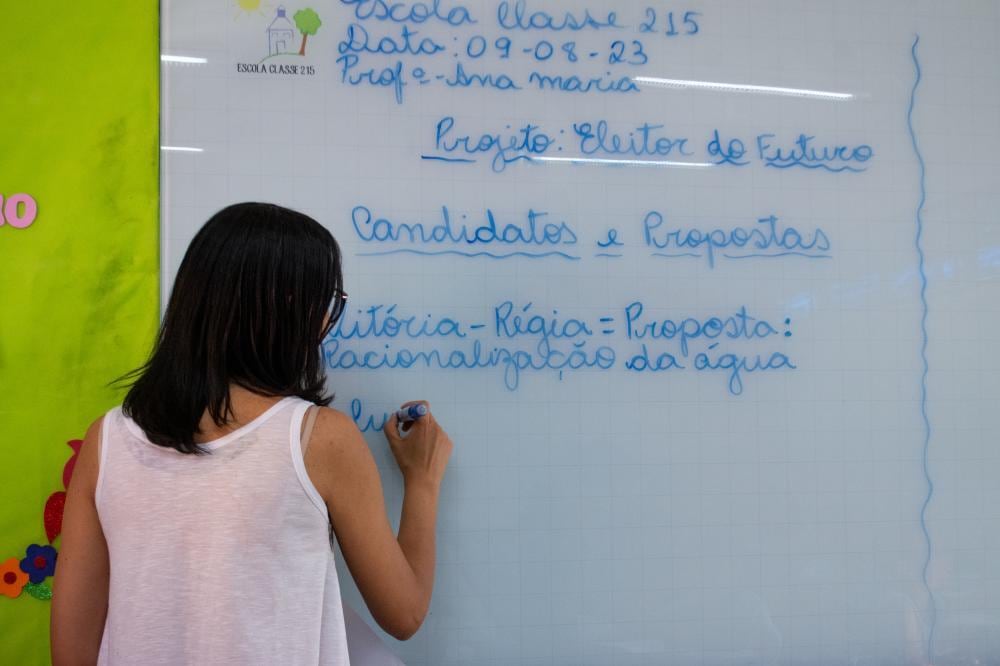 Escola Classe 215
Data: 09-08-23
Profª-Ana maria
ESCOLA CLASSE 215
Projeto: Eleitor do Futuro
Candidatos e Propostas
litória-Régia = Proposta:
Racionalização da água